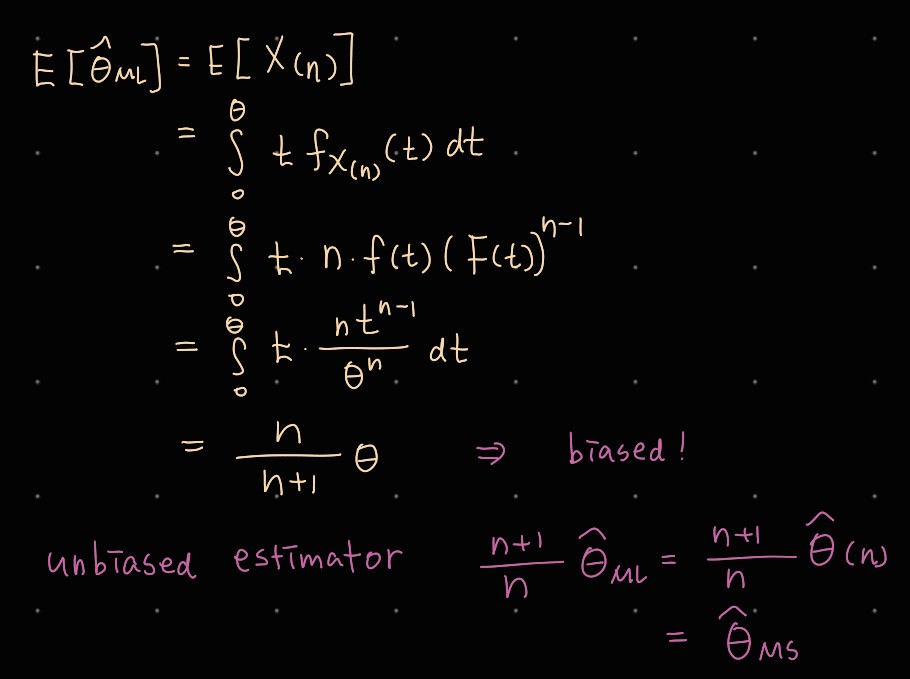 E[θ̂_ML] = E[X_(n)]
= ∫_0^θ t f_X_(n)(t) dt
= ∫_0^θ t · n · f(t) (F(t))^{n-1}
= ∫_0^θ t · \frac{n t^{n-1}}{θ^n} dt
= \frac{n}{n+1} θ ⇒ biased!
unbiased estimator \frac{n+1}{n} θ̂_ML = \frac{n+1}{n} θ̂_(n)
= θ̂_MS